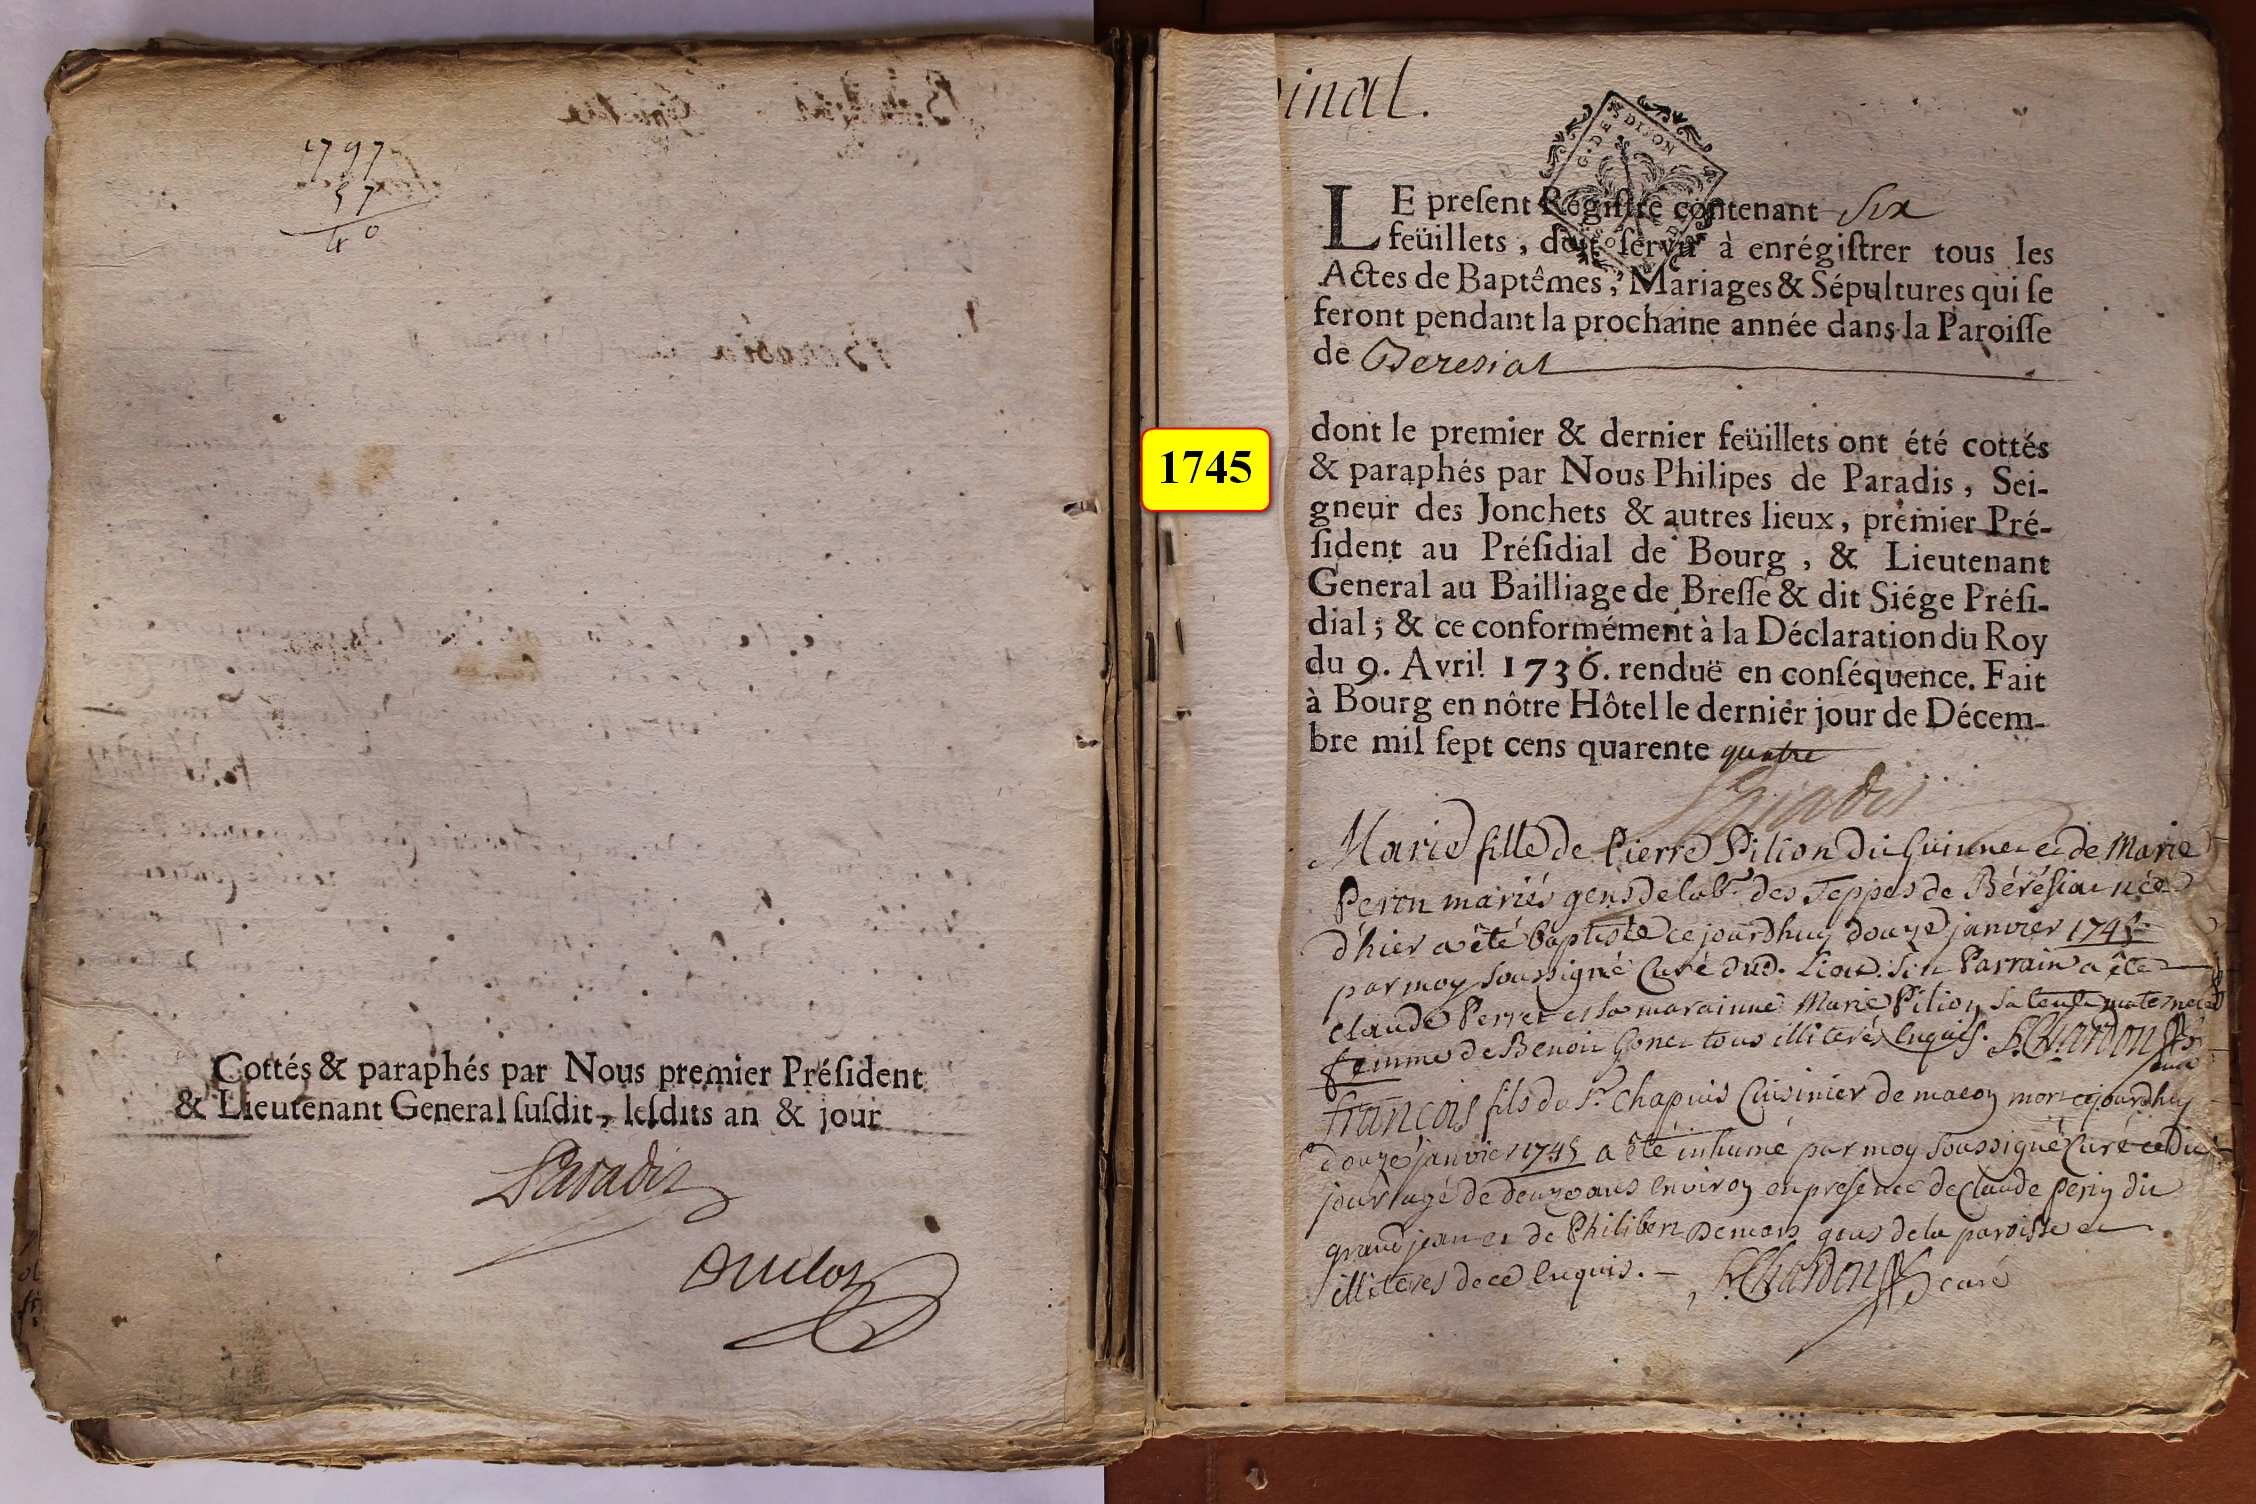 1797
57
40
Cottés & paraphés par Nous premier Préſident
& Lieutenant General ſuſdit, leſdits an & jour
Paradis
Duclos
inal.
G. DE DIJON
LE preſent Regiſtre contenant Six
feüillets, doit ſervir à enrégiſtrer tous les
Actes de Baptêmes, Mariages & Sépultures qui ſe
feront pendant la prochaine année dans la Paroiſſe
de Beresiat
dont le premier & dernier feüillets ont été cottés
& paraphés par Nous Philipes de Paradis, Sei-
gneur des Jonchets & autres lieux, premier Pré-
ſident au Préſidial de Bourg, & Lieutenant
General au Bailliage de Breſſe & dit Siége Préſi-
dial; & ce conformément à la Déclaration du Roy
du 9. Avril 1736. renduë en conſéquence. Fait
à Bourg en nôtre Hôtel le dernier jour de Décem-
bre mil ſept cens quarente quatre
Paradis
1745
Marie fille de Pierre Pilion dit et de Marie
Peron mariés gens de lab.r des Teppes de Bérésiat née
d'hier a été baptisée ce jourdhuy douze janvier 1745
par moy soussigné Curé dud. Lieu. Son Parrain a été
Claude Perret et la marainne Marie Pilion sa tente maternelle
femme de Benoit Gonet tous illiterés Enquis. Chardon curé
françois fils du Sr. Chapuis Cuisinier de macon mort cejourdhuy
douze janvier 1745 a été inhumé par moy soussigné Curé cedit
jour agé de douze ans Environ en presence de Claude Perin dit
grand jean et de Philibert Demons gens de la paroisse et
illiteres de ce Enquis. Chardon curé